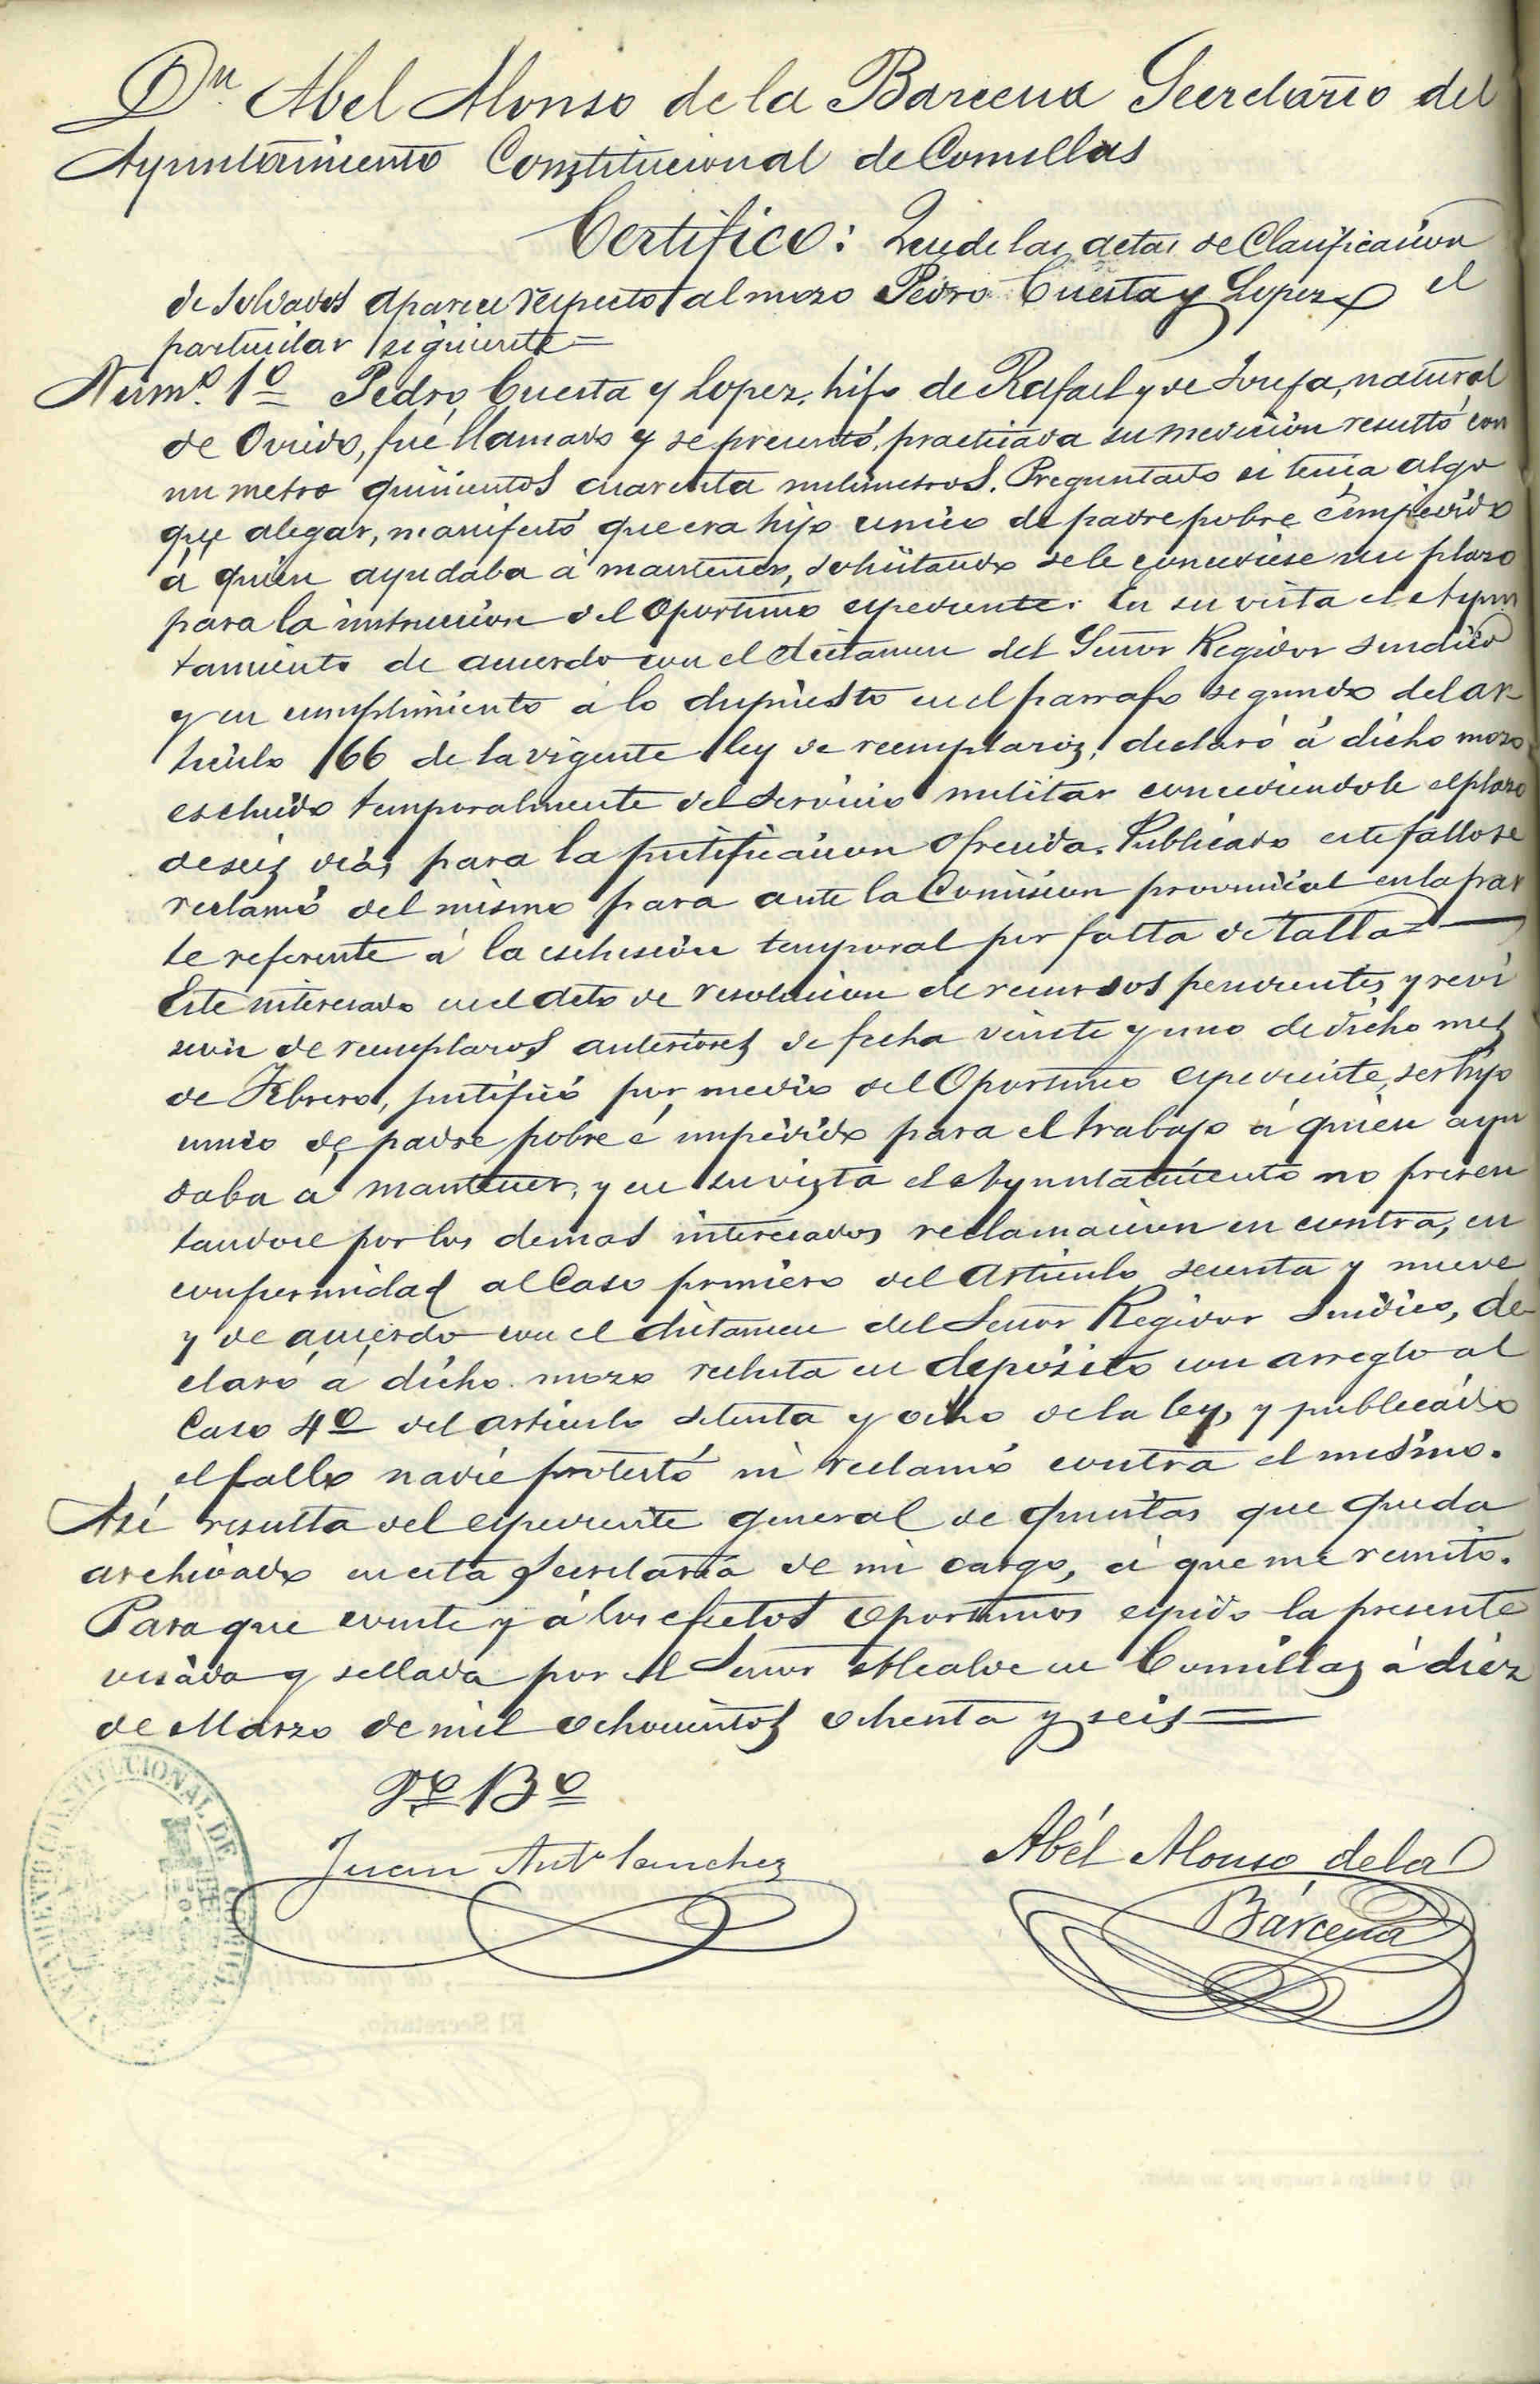 Dn Abel Alonso de la Barcena Secretario del
Ayuntamiento Constitucional de Comillas
Certifico: Que de las actas de Clasificacion
de soldados aparece respecto al mozo Pedro Cuesta y Lopez el
particular siguiente=
Numº. 1º Pedro Cuesta y Lopez, hijo de Rafael y de Josefa, natural
de Oviedo, fué llamado y se presentó, practicada su medicion resultó con
un metro quinientos cuarenta milimetros. Preguntado si tenia algo
que alegar, manifestó que era hijo unico de padre pobre é impedido
á quien ayudaba á mantener, solicitando se le concediese un plazo
para la instruccion del oportuno espediente. En su vista el Ayun
tamiento de acuerdo con el dictamen del Señor Regidor Sindico
y en cumplimiento á lo dispuesto en el parrafo segundo del ar
ticulo 66 de la vigente ley de reemplazos, declaró á dicho mozo
escluido temporalmente del servicio militar concediendole el plazo
de seis dias para la justificacion ofrecida. Publicado este fallo se
reclamó del mismo para ante la Comision provincial en la par
te referente á la esclusion temporal por falta de talla=
Este interesado en el acto de resolucion de recursos pendientes y revi
sion de reemplazos anteriores de fecha veinte y uno de dicho mes
de Febrero, justificó por medio del Oportuno espediente, ser hijo
unico de padre pobre é impedido para el trabajo á quien ayu
daba á mantener, y en su vista el Ayuntamiento no presen
tandose por los demas interesados reclamacion en contra, en
conformidad al Caso primero del Articulo sesenta y nueve
y de acuerdo con el dictamen del Señor Regidor Sindico, de-
claró á dicho mozo recluta en depósito con arreglo al
Caso 4º del articulo setenta y ocho de la ley, y publicado
el fallo nadie protestó ni reclamó contra el mismo.
Así resulta del espediente general de quintas que queda
archivado en esta Secretaria de mi cargo, á que me remito.
Para que conste y á los efectos oportunos espido la presente
visada y sellada por el Señor Alcalde en Comillas á diez
de Marzo de mil ochocientos ochenta y seis=
Vº Bº
Juan Antº Sanchez
Abél Alonso de la
Bárcena
AYUNTAMIENTO CONSTITUCIONAL DE COMILLAS